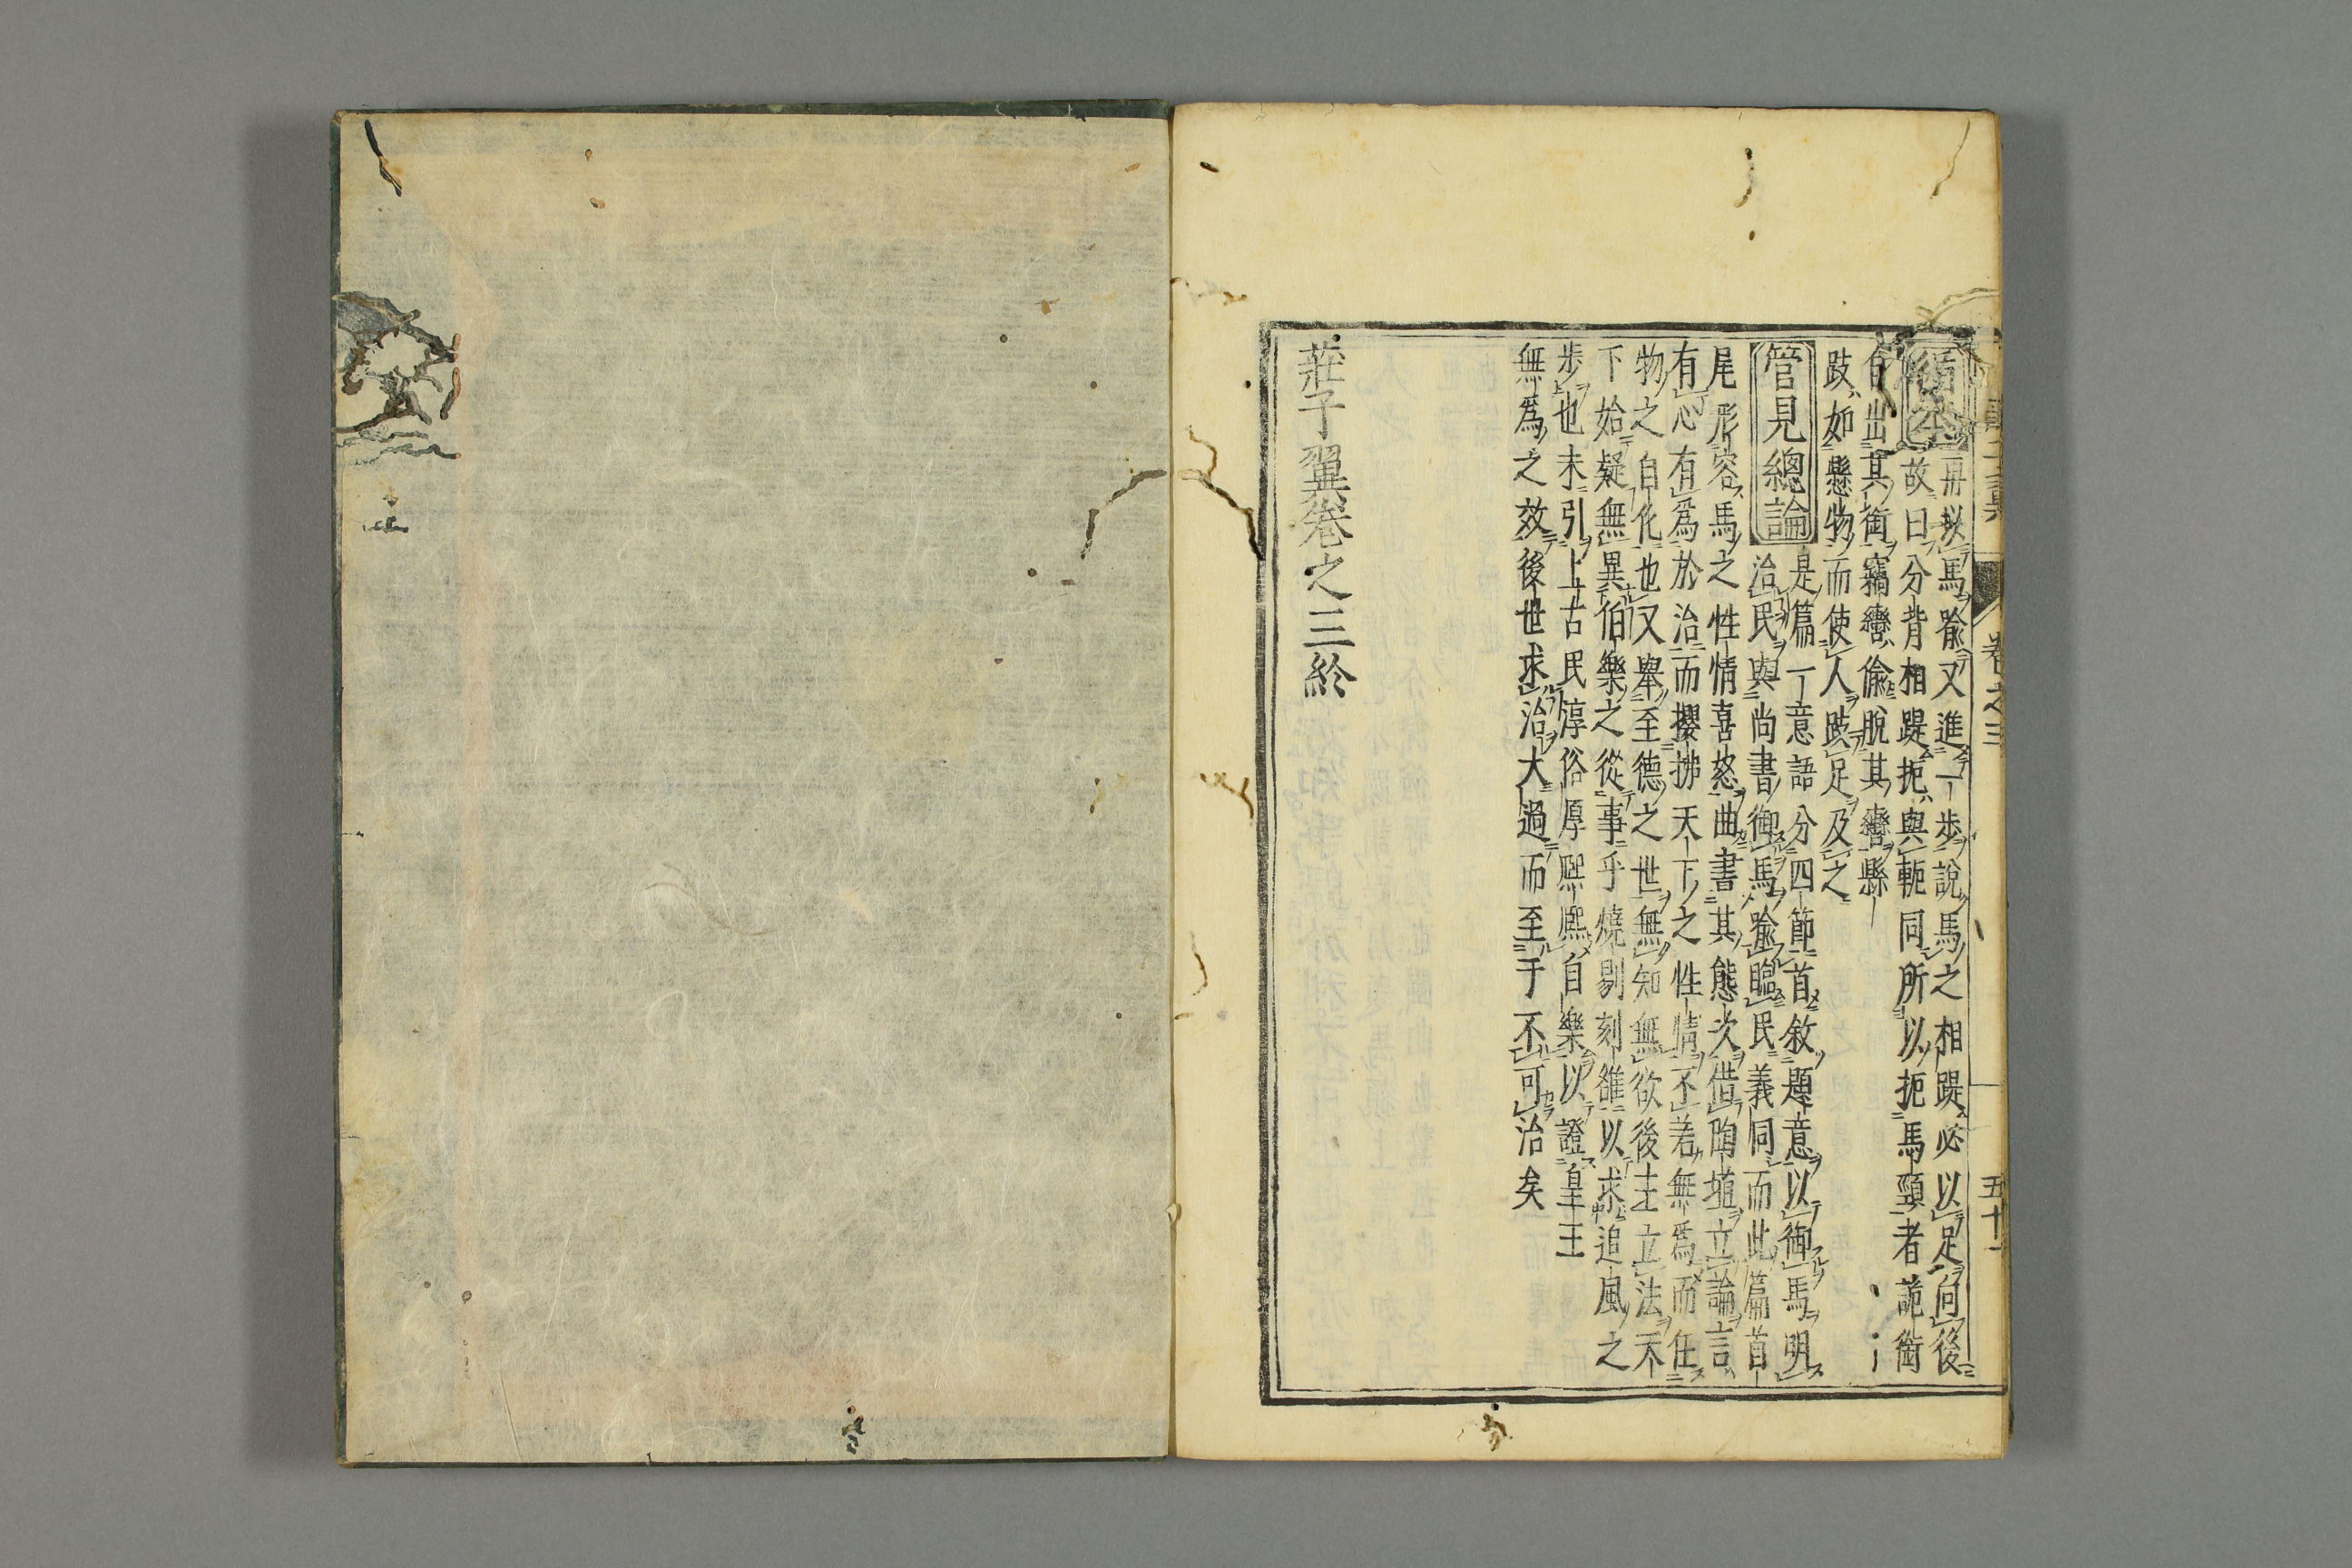 莊子翼 卷之三 五十一
再以馬喩又進一歩說馬之相踶必以足向後
故曰分背相踶扼與軛同所以扼馬頸者詭銜
出其銜竊轡偷脫其轡縣
跂如懸物而使人跂足及之
管見總論 是篇一意語分四節首敘題意以御馬明
治民與尚書御馬喩臨民義同而此篇首
尾形容馬之性情喜怒曲書其態次借陶埴立論言
有心有爲於治而攖拂天下之性情不若無爲而任
物之自化也又舉至德之世無知無欲後主立法天
下始疑無異伯樂之從事乎燒剔刻雒以求追風之
歩也末引上古民淳俗厚熙熙自樂以證皇王
無爲之效後世求治大過而至于不可治矣
莊子翼卷之三終